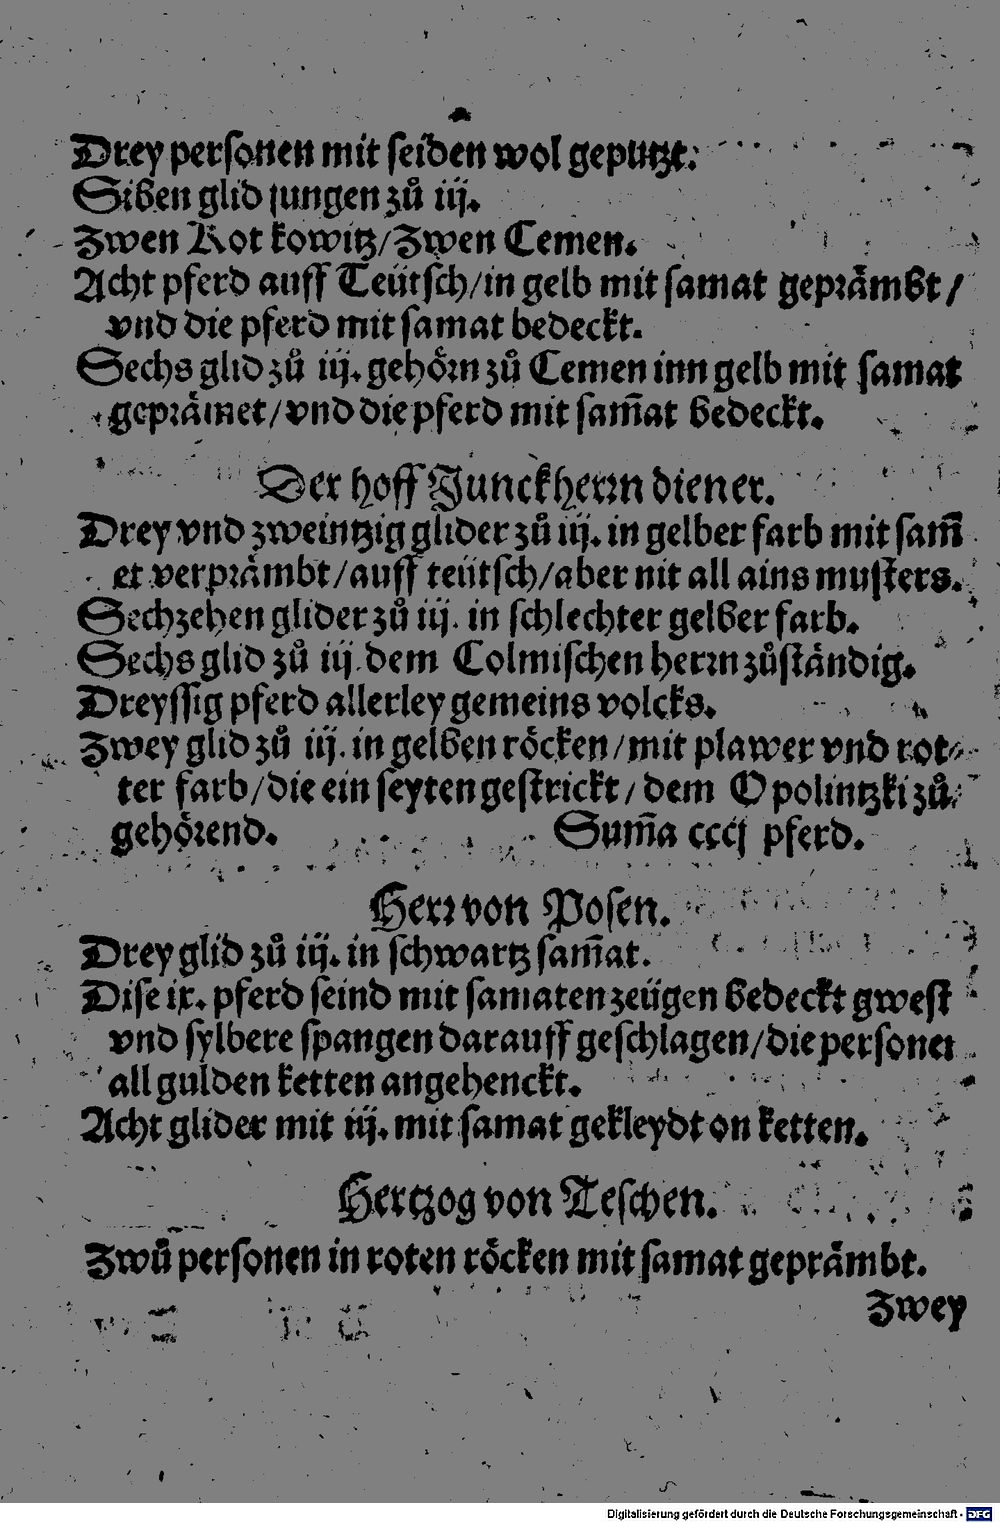 Drey personen mit seiden wol geputzt.
Siben glid jungen zů iij.
Zwen Rot kowitz/Zwen Cemen.
Acht pferd auff Teütsch/in gelb mit samat geprämbt/
vnd die pferd mit samat bedeckt.
Sechs glid zů iij. gehörn zů Cemen inn gelb mit samat
geprämet/vnd die pferd mit sam̃at bedeckt.
Der hoff Junckherrn diener.
Drey vnd zweintzig glider zů iij. in gelber farb mit sam̃
et verprämbt/auff teütsch/aber nit all ains musters.
Sechzehen glider zů iij. in schlechter gelber farb.
Sechs glid zů iij. dem Colmischen herrn zůständig.
Dreyssig pferd allerley gemeins volcks.
Zwey glid zů iij. in gelben röcken/mit plawer vnd rot-
ter farb/die ein seyten gestrickt/dem Opolintzki zů
gehörend. Sum̃a cccj pferd.
Herr von Posen.
Drey glid zů iij. in schwartz sam̃at.
Dise ix. pferd seind mit samaten zeügen bedeckt gwest
vnd sylbere spangen darauff geschlagen/die personen
all gulden ketten angehenckt.
Acht glider mit iij. mit samat gekleydt on ketten.
Hertzog von Teschen.
Zwů personen in roten röcken mit samat geprämbt.
Zwey
Digitalisierung gefördert durch die Deutsche Forschungsgemeinschaft - DFG